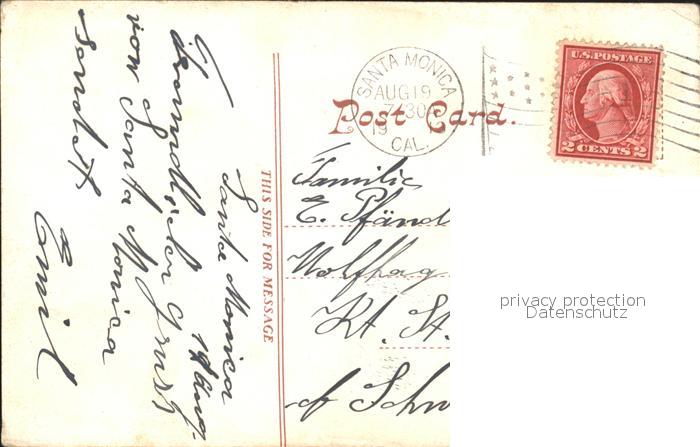 Santa Monica
19 Aug.
Freundlicher Gruss
von Santa Monica
sendet
Emil
THIS SIDE FOR MESSAGE
Post Card.
SANTA MONICA
AUG 19
7-30
19
CAL.
U.S. POSTAGE
2 CENTS 2
Familie
E. Pfänd
Wolfhag
Kt. St.
of Schw
privacy protection
Datenschutz